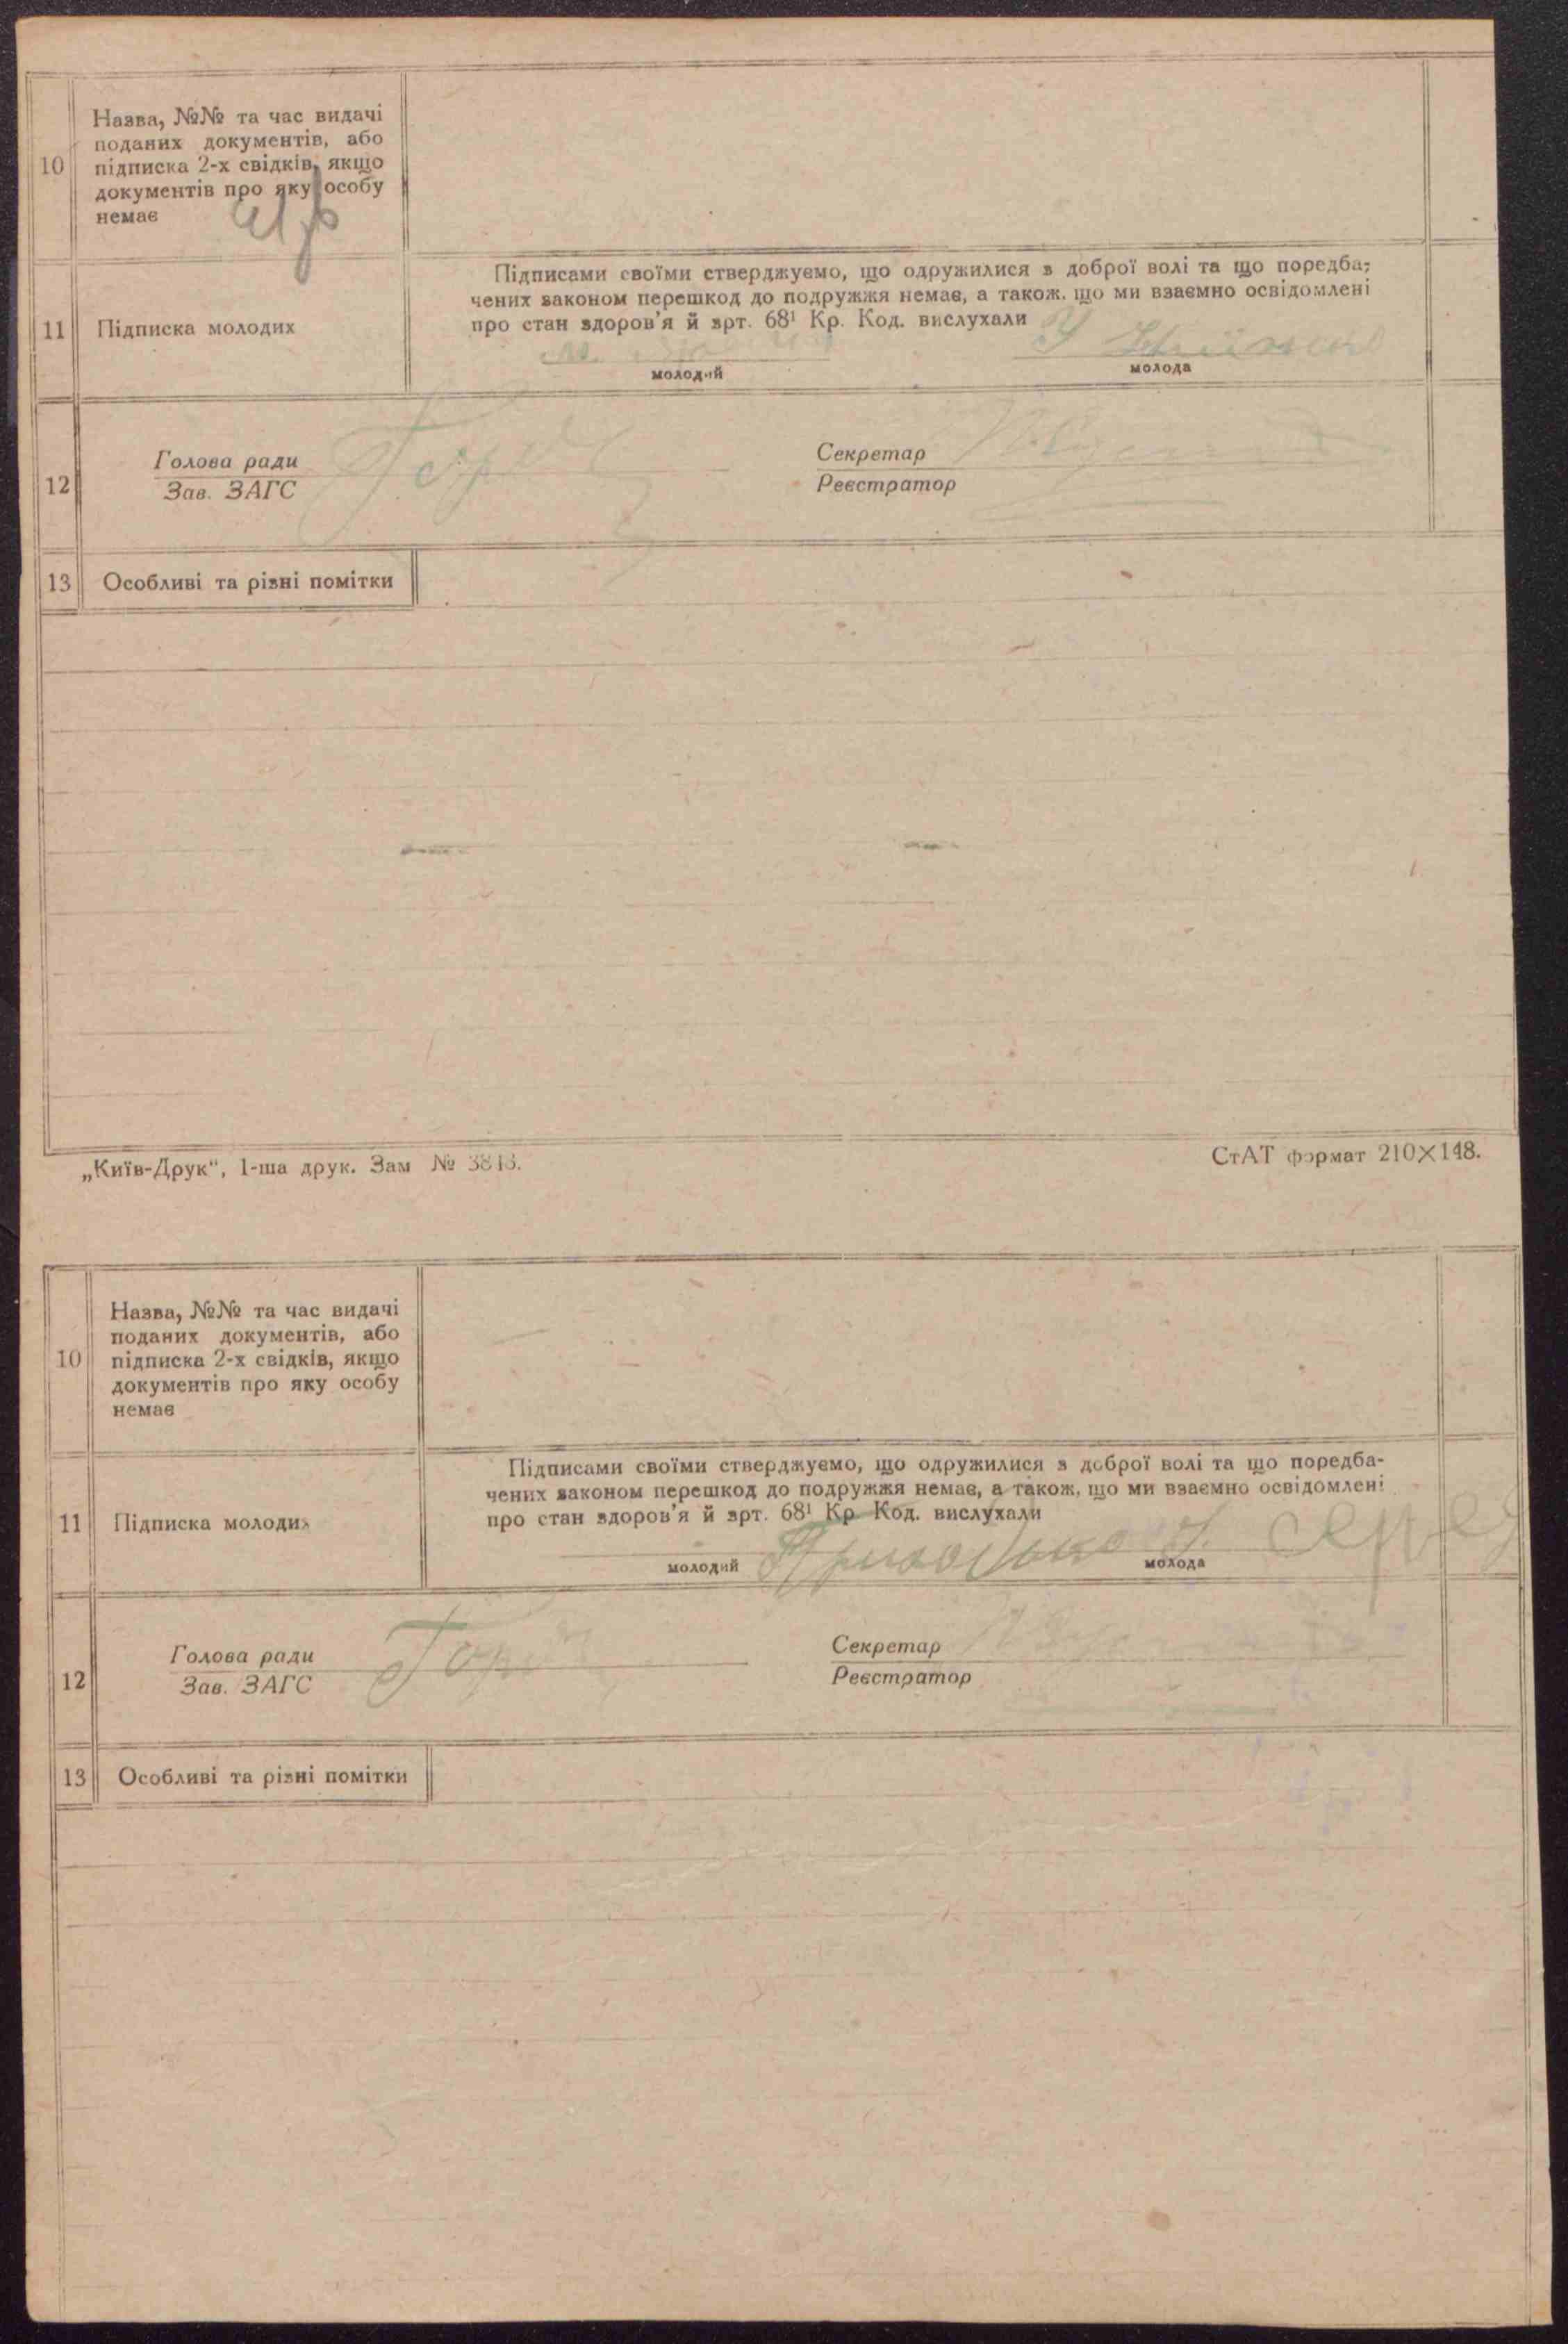 10
Назва, №№ та час видачі
поданих документів, або
підписка 2-х свідків, якщо
документів про яку особу
немає
11
Підписка молодих
Підписами своїми стверджуємо, що одружилися з доброї волі та що поредба-
чених законом перешкод до подружжя немає, а також, що ми взаємно освідомлені
про стан здоров'я й арт. 68¹ Кр. Код. вислухали
молодий
молода
12
Голова ради
Зав. ЗАГС
Секретар
Реєстратор
13
Особливі та різні помітки
„Київ-Друк“, 1-ша друк. Зам № 3813.
СтАТ формат 210×148.
10
Назва, №№ та час видачі
поданих документів, або
підписка 2-х свідків, якщо
документів про яку особу
немає
11
Підписка молодих
Підписами своїми стверджуємо, що одружилися з доброї волі та що поредба-
чених законом перешкод до подружжя немає, а також, що ми взаємно освідомлені
про стан здоров'я й арт. 68¹ Кр. Код. вислухали
молодий
молода
12
Голова ради
Зав. ЗАГС
Секретар
Реєстратор
13
Особливі та різні помітки